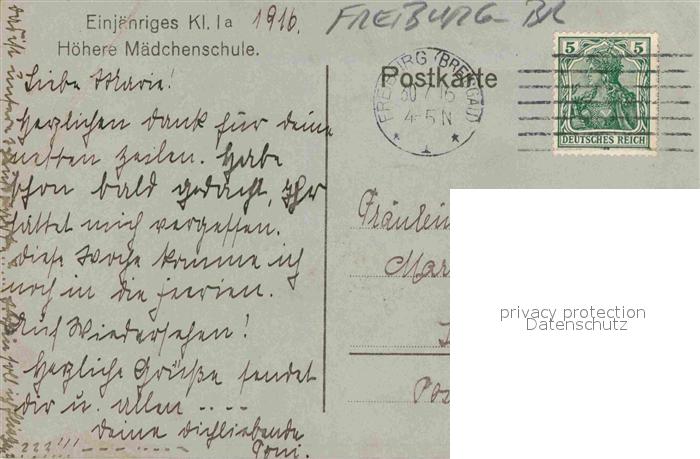 Einjähriges Kl. Ia 1916.
Höhere Mädchenschule.
FREIBURG BR
Postkarte
FREIBURG (BREISGAU)
4-5 N
5 5
DEUTSCHES REICH
Liebe Marie!
Herzlichen Dank für deine
netten Zeilen. Habe
schon bald gedacht, Ihr
hättet mich vergessen.
Diese Woche komme ich
noch in die Feerien.
Auf Wiedersehen!
Herzliche Grüße sendet
dir u. allen ....
Deine dichliebende
Toni.
???!!!
Fräulein
Mar
Pos
privacy protection
Datenschutz